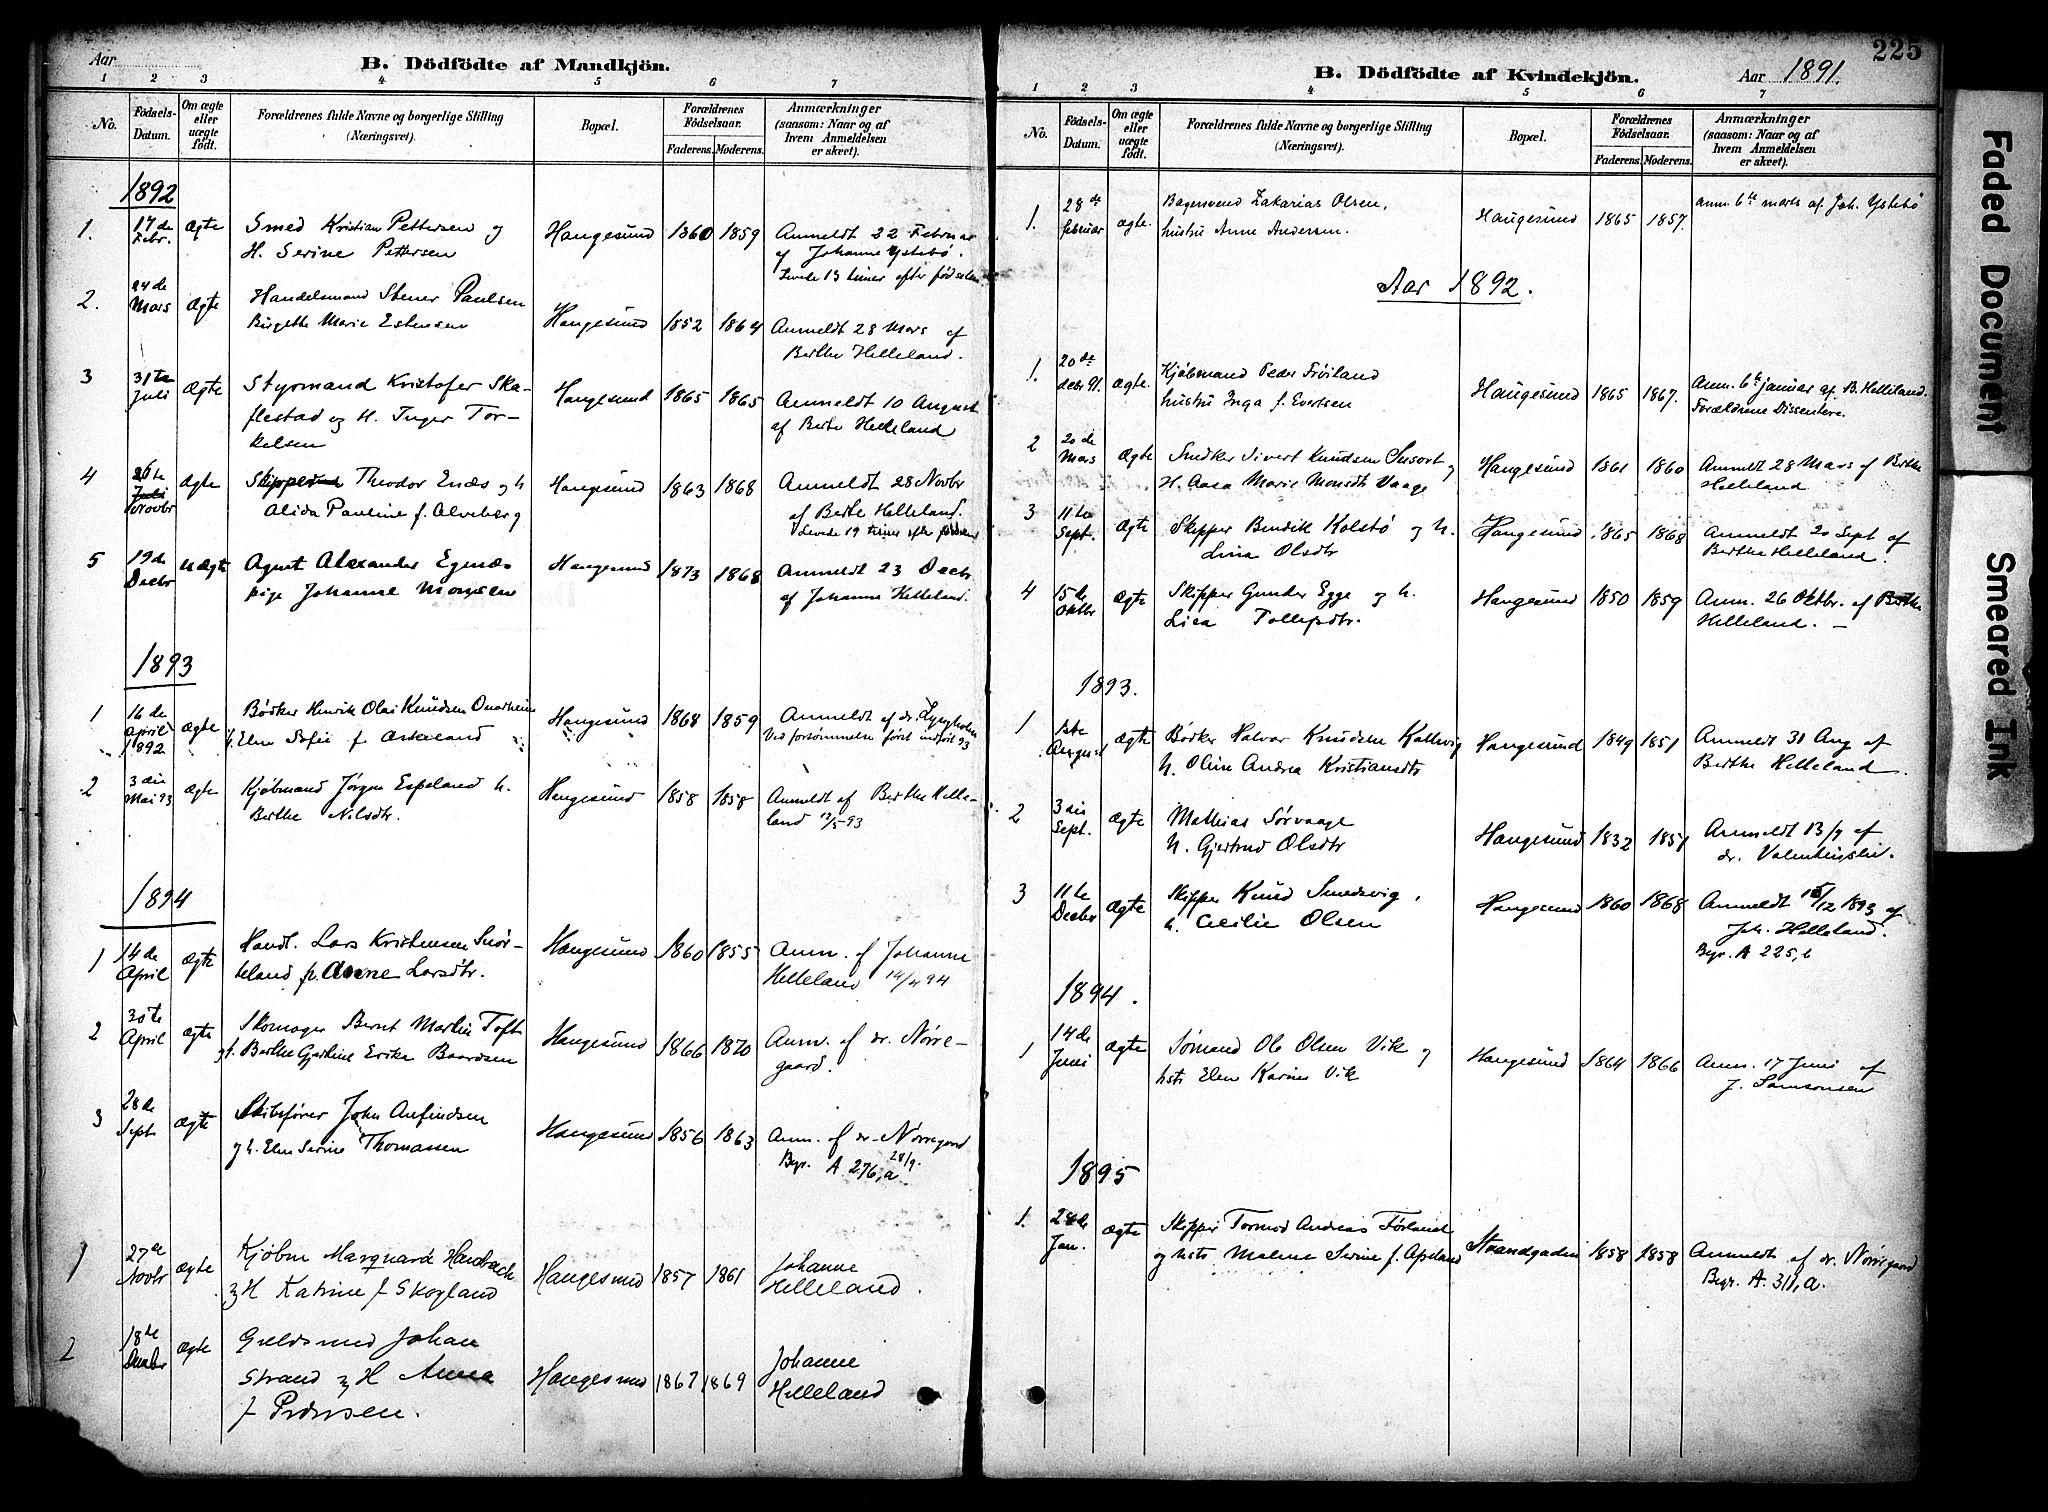 Aar
B. Dödfödte af Mandkjön.
1 2 3 4 5 6 7
No.
Födsels-Datum.
Om ægte eller uægte födt.
Forældrenes fulde Navne og borgerlige Stilling (Næringsvei).
Bopæl.
Forældrenes Födselsaar.
Faderens. Moderens.
Anmærkninger (saasom: Naar og af hvem Anmeldelsen er skeet).
1892
1. 17de Febr. ægte Smed Kristian Pettersen og Haugesund 1860 1859 Anmeldt 22 Februar
H. Serine Pettersen af Johanne Ystebø.
Levede 13 timer efter fødselen
2. 24de Mars ægte Handelsmand Stener Paulsen
Birgethe Marie Estensen Haugesund 1852 1864 Anmeldt 28 Mars af
Berthe Helleland.
3 31te Juli ægte Styrmand Kristofer Ska- Haugesund 1865 1865 Anmeldt 10 August
flestad og H. Inger Tor- af Berte Helleland
kelsen
4 26te Juli Novbr ægte Skipper Theodor Enæs og h Haugesund 1863 1868 Anmeldt 28 Novbr
Alida Pauline f. Alveberg af Berte Helleland.
Levede 19 timer efter fødselen
5 19de Decbr uægte Agent Alexander Egenæs Haugesund 1873 1868 Anmeldt 23 Decbr.
pige Johanne Monsen af Johanne Helleland.
1893
1 16de April 1892 ægte Bödker Henrik Olai Knudsen Onarheim Haugesund 1868 1859 Anmeldt af dr. Lyngholm
h. Elen Sofie f. Askeland Ved forsömmelse först indført 93
2 3die Mai 93 ægte Kjøbmand Jørgen Espeland h. Haugesund 1858 1858 Anmeldt af Berthe Helle-
Berthe Nilsdtr. land 12/5 93
1894
1 14de April ægte Handl. Lars Kristensen Haugesund 1860 1855 Anm. af Johanne
land f. Anne Larsdtr. Helleland 14/4 94
2 30te April ægte Skomager Bernt Martin Toft Haugesund 1866 1870 Anm. af dr. Nörre-
og h. Berthe Gjertine Erika Baardsen gaard.
3 28de Sept. ægte Skibsfører John Anfindsen
og h. Elen Serine Thomassen Haugesund 1856 1863 Anm. af dr. Nörregaard
28/9.
Begr. A 276, a
1 27de Novbr ægte Kjøbm Marquard Handrach
og H Katrine f Skogland Haugesund 1857 1861 Johanne
Helleland.
2 18de Decbr ægte Guldsmed Johan
Strand og H Anna Haugesund 1867 1869 Johanne
f Pedersen. Helleland
225
B. Dödfödte af Kvindekjön.
Aar 1891.
1 2 3 4 5 6 7
No.
Födsels-Datum.
Om ægte eller uægte födt.
Forældrenes fulde Navne og borgerlige Stilling (Næringsvei).
Bopæl.
Forældrenes Födselsaar.
Faderens. Moderens.
Anmærkninger (saasom: Naar og af hvem Anmeldelsen er skeet).
1. 28de februar ægte. Bagersvend Zakarias Olsen, Haugesund 1865 1857. anm. 6te marts af Joh. Ystebø
hustru Anne Andersen.
Aar 1892.
1. 20de decbr 91. ægte. Kjøbmand Peder Frøiland Haugesund 1865 1867. Anm. 6te januar af B. Helleland.
hustru Inga f. Evertsen Forældrene Dissentere.
2 20de Mars ægte Snedker Sivert Knudsen Susort og Haugesund 1861 1860 Anmeldt 28 Mars af Berthe
H. Aasa Marie Monsdtr Vaage Helleland
3 11te Sept. ægte Skipper Bendik Kolstø og h. Haugesund 1865 1868 Anmeldt 20 Sept af
Lina Olsdtr Berthe Helleland.
4 15de Oktbr ægte Skipper Gunder Egge og h. Haugesund 1850 1859 Anm. 26 Oktbr. af Berthe
Lisa Tollefsdtr. Helleland. —
1893.
1 1ste August ægte Bödker Halvar Knudsen Kallevig Haugesund 1849 1851 Anmeldt 31 Aug af
h. Oline Andrea Kristiansdtr Berthe Helleland.
2 3die Sept. ægte Mathias Sørvaage Haugesund 1832 1851 Anmeldt 13/9 af
h. Gjertrud Olsdtr dr. Valentinsen.
3 11te Decbr ægte Skipper Knud Smedsvig, Haugesund 1860 1868 Anmeldt 15/12 1893 af
h. Cecilie Olsen Joh. Helleland.
Begr. A 225, b
1894.
1 14de Juni ægte Sömand Ole Olsen Vik og Haugesund 1864 1866 Anm. 17 Juni af
hstr Elen Karine Vik J. Samsonsen
1895
1. 24de Jan. ægte Skipper Tormod Andreas Førland Strandgaden 1858 1858 Anmeldt af dr. Nörregaard
og hstr Malene Serine f. Apeland Begr. A. 311, a.
Faded Document
Smeared Ink